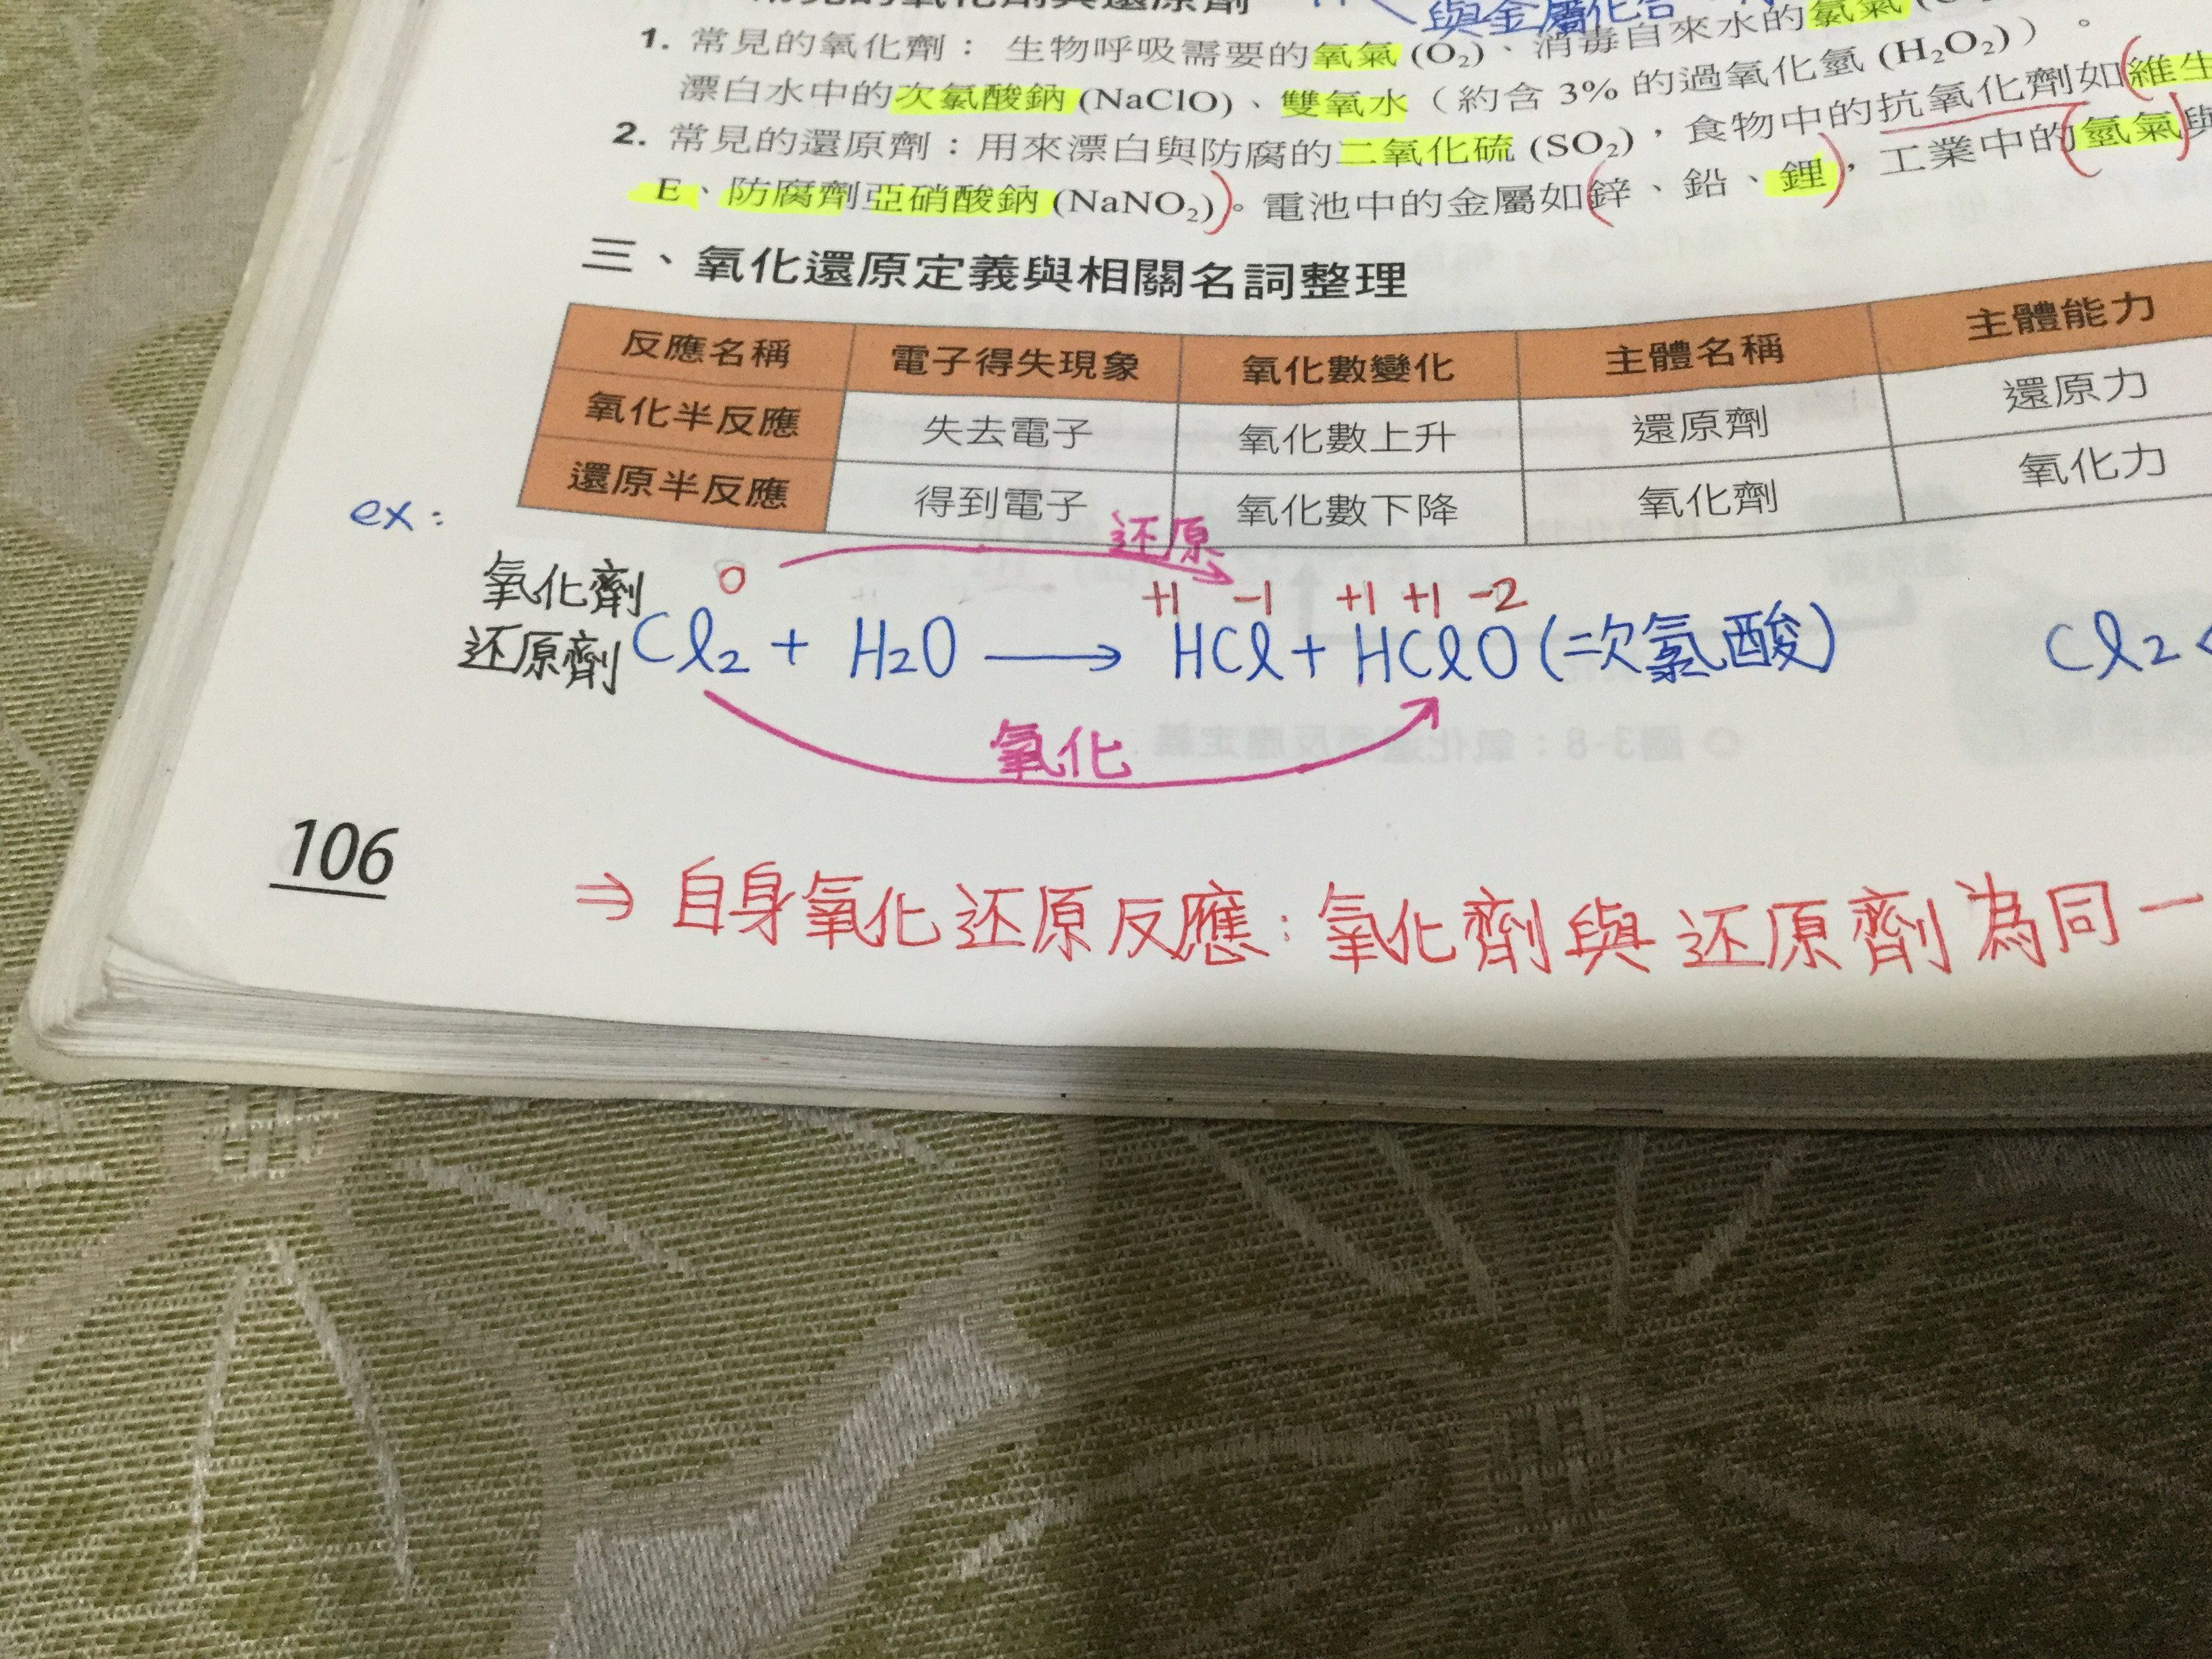 與金屬化合
1. 常見的氧化劑：生物呼吸需要的氧氣 (O₂)、消毒自來水的氯氣
漂白水中的次氯酸鈉 (NaClO)、雙氧水（約含 3% 的過氧化氫 (H₂O₂)）。
2. 常見的還原劑：用來漂白與防腐的二氧化硫 (SO₂)，食物中的抗氧化劑如(維生
E、防腐劑亞硝酸鈉 (NaNO₂))。電池中的金屬如(鋅、鉛、鋰)，工業中的(氫氣)與
三、氧化還原定義與相關名詞整理
反應名稱 電子得失現象 氧化數變化 主體名稱 主體能力
氧化半反應 失去電子 氧化數上升 還原劑 還原力
還原半反應 得到電子 氧化數下降 氧化劑 氧化力
ex:
还原
氧化劑 0 +1 -1 +1 +1 -2
还原劑 Cl₂ + H₂O → HCl + HClO (二次氯酸) Cl₂
氧化
106
⇒ 自身氧化还原反應：氧化劑與还原劑為同一